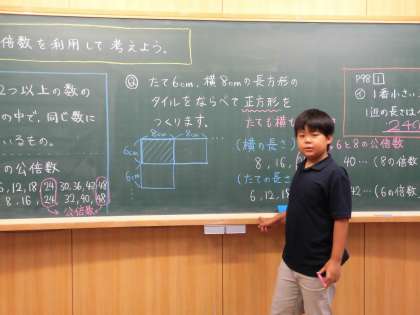 倍数を利用して考えよう。
2つ以上の数の
の中で、同じ数に
いるもの。
の公倍数
6, 12, 18, 24, 30, 36, 42, 48
8, 16, 24, 32, 40, 48
公倍数
Q たて6cm、横8cmの長方形の
タイルをならべて正方形を
つくります。
たても横も
8cm 8cm
6cm
6cm
(横の長さ)
8, 16,
40 … (8の倍数
(たての長さ
6, 12, 18
42 … (6の倍数
6と8の公倍数
P98 1
イ 1番小さい
1辺の長さは
24